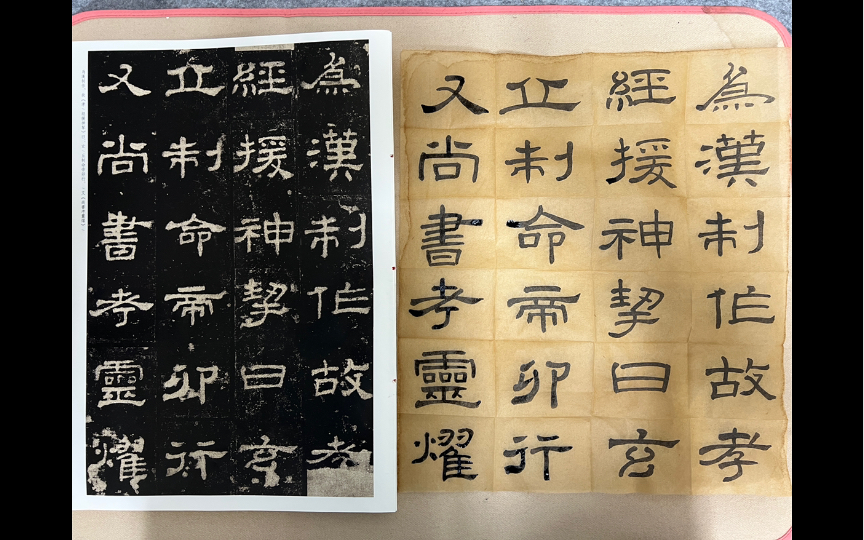 為漢制作故孝
經援神挈曰玄
丘制命帝卯行
又尚書考靈燿
為漢制作故孝
經援神挈曰玄
丘制命帝卯行
又尚書考靈燿